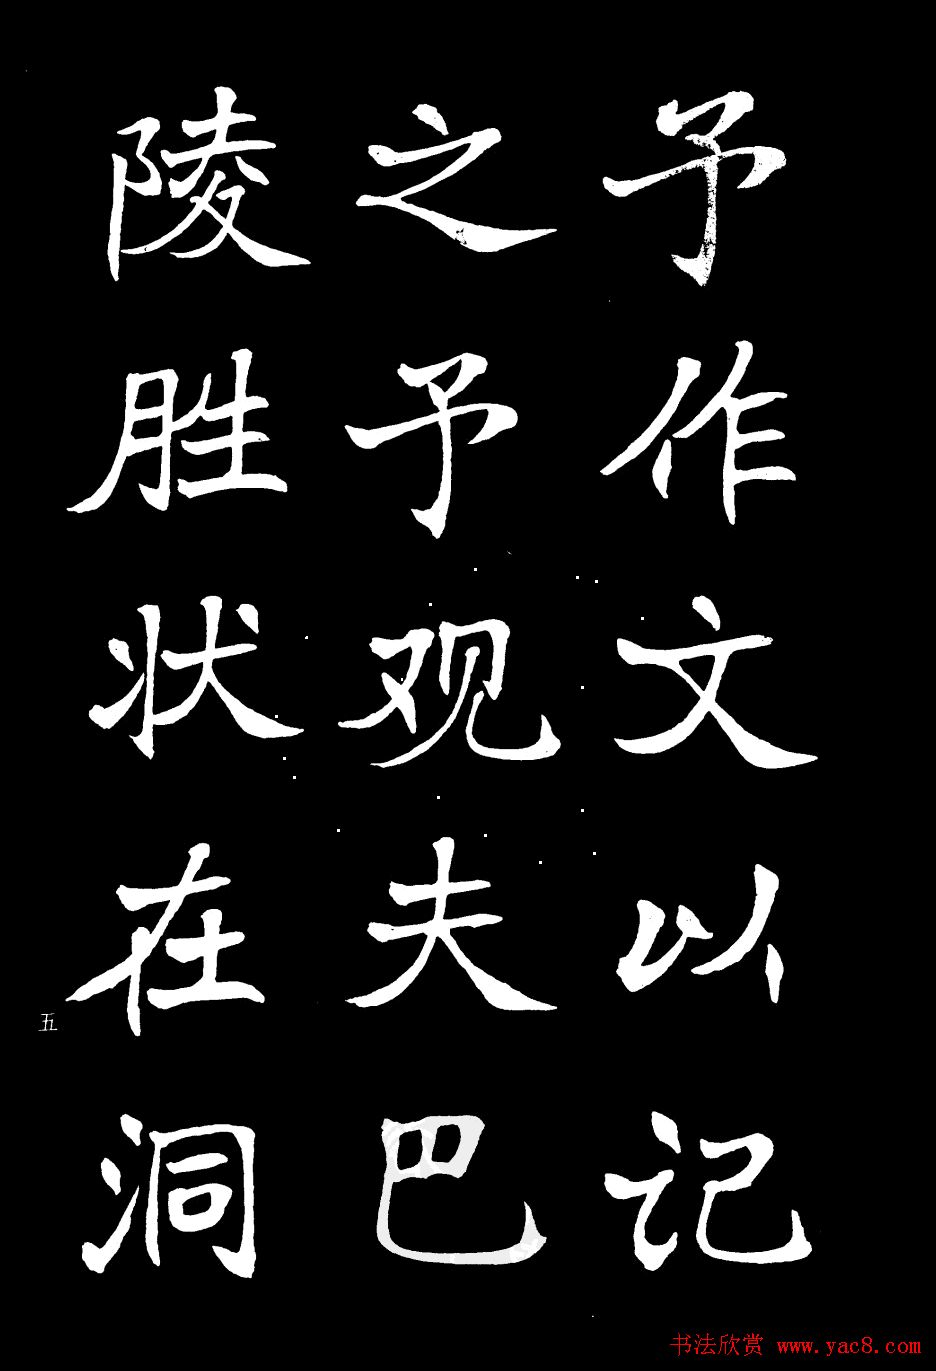 予作文以记
之予观夫巴
陵胜状在洞
五
书法欣赏 www.yac8.com